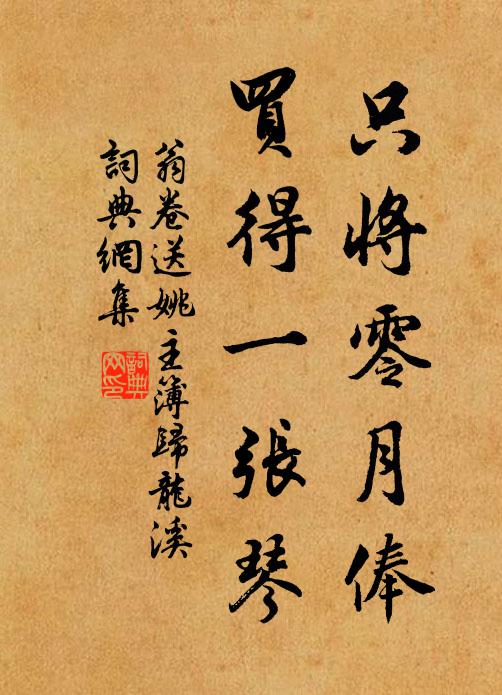 只將零月俸
買得一張琴
翁卷送姚主簿歸龍溪
詞典網集
詞典網印